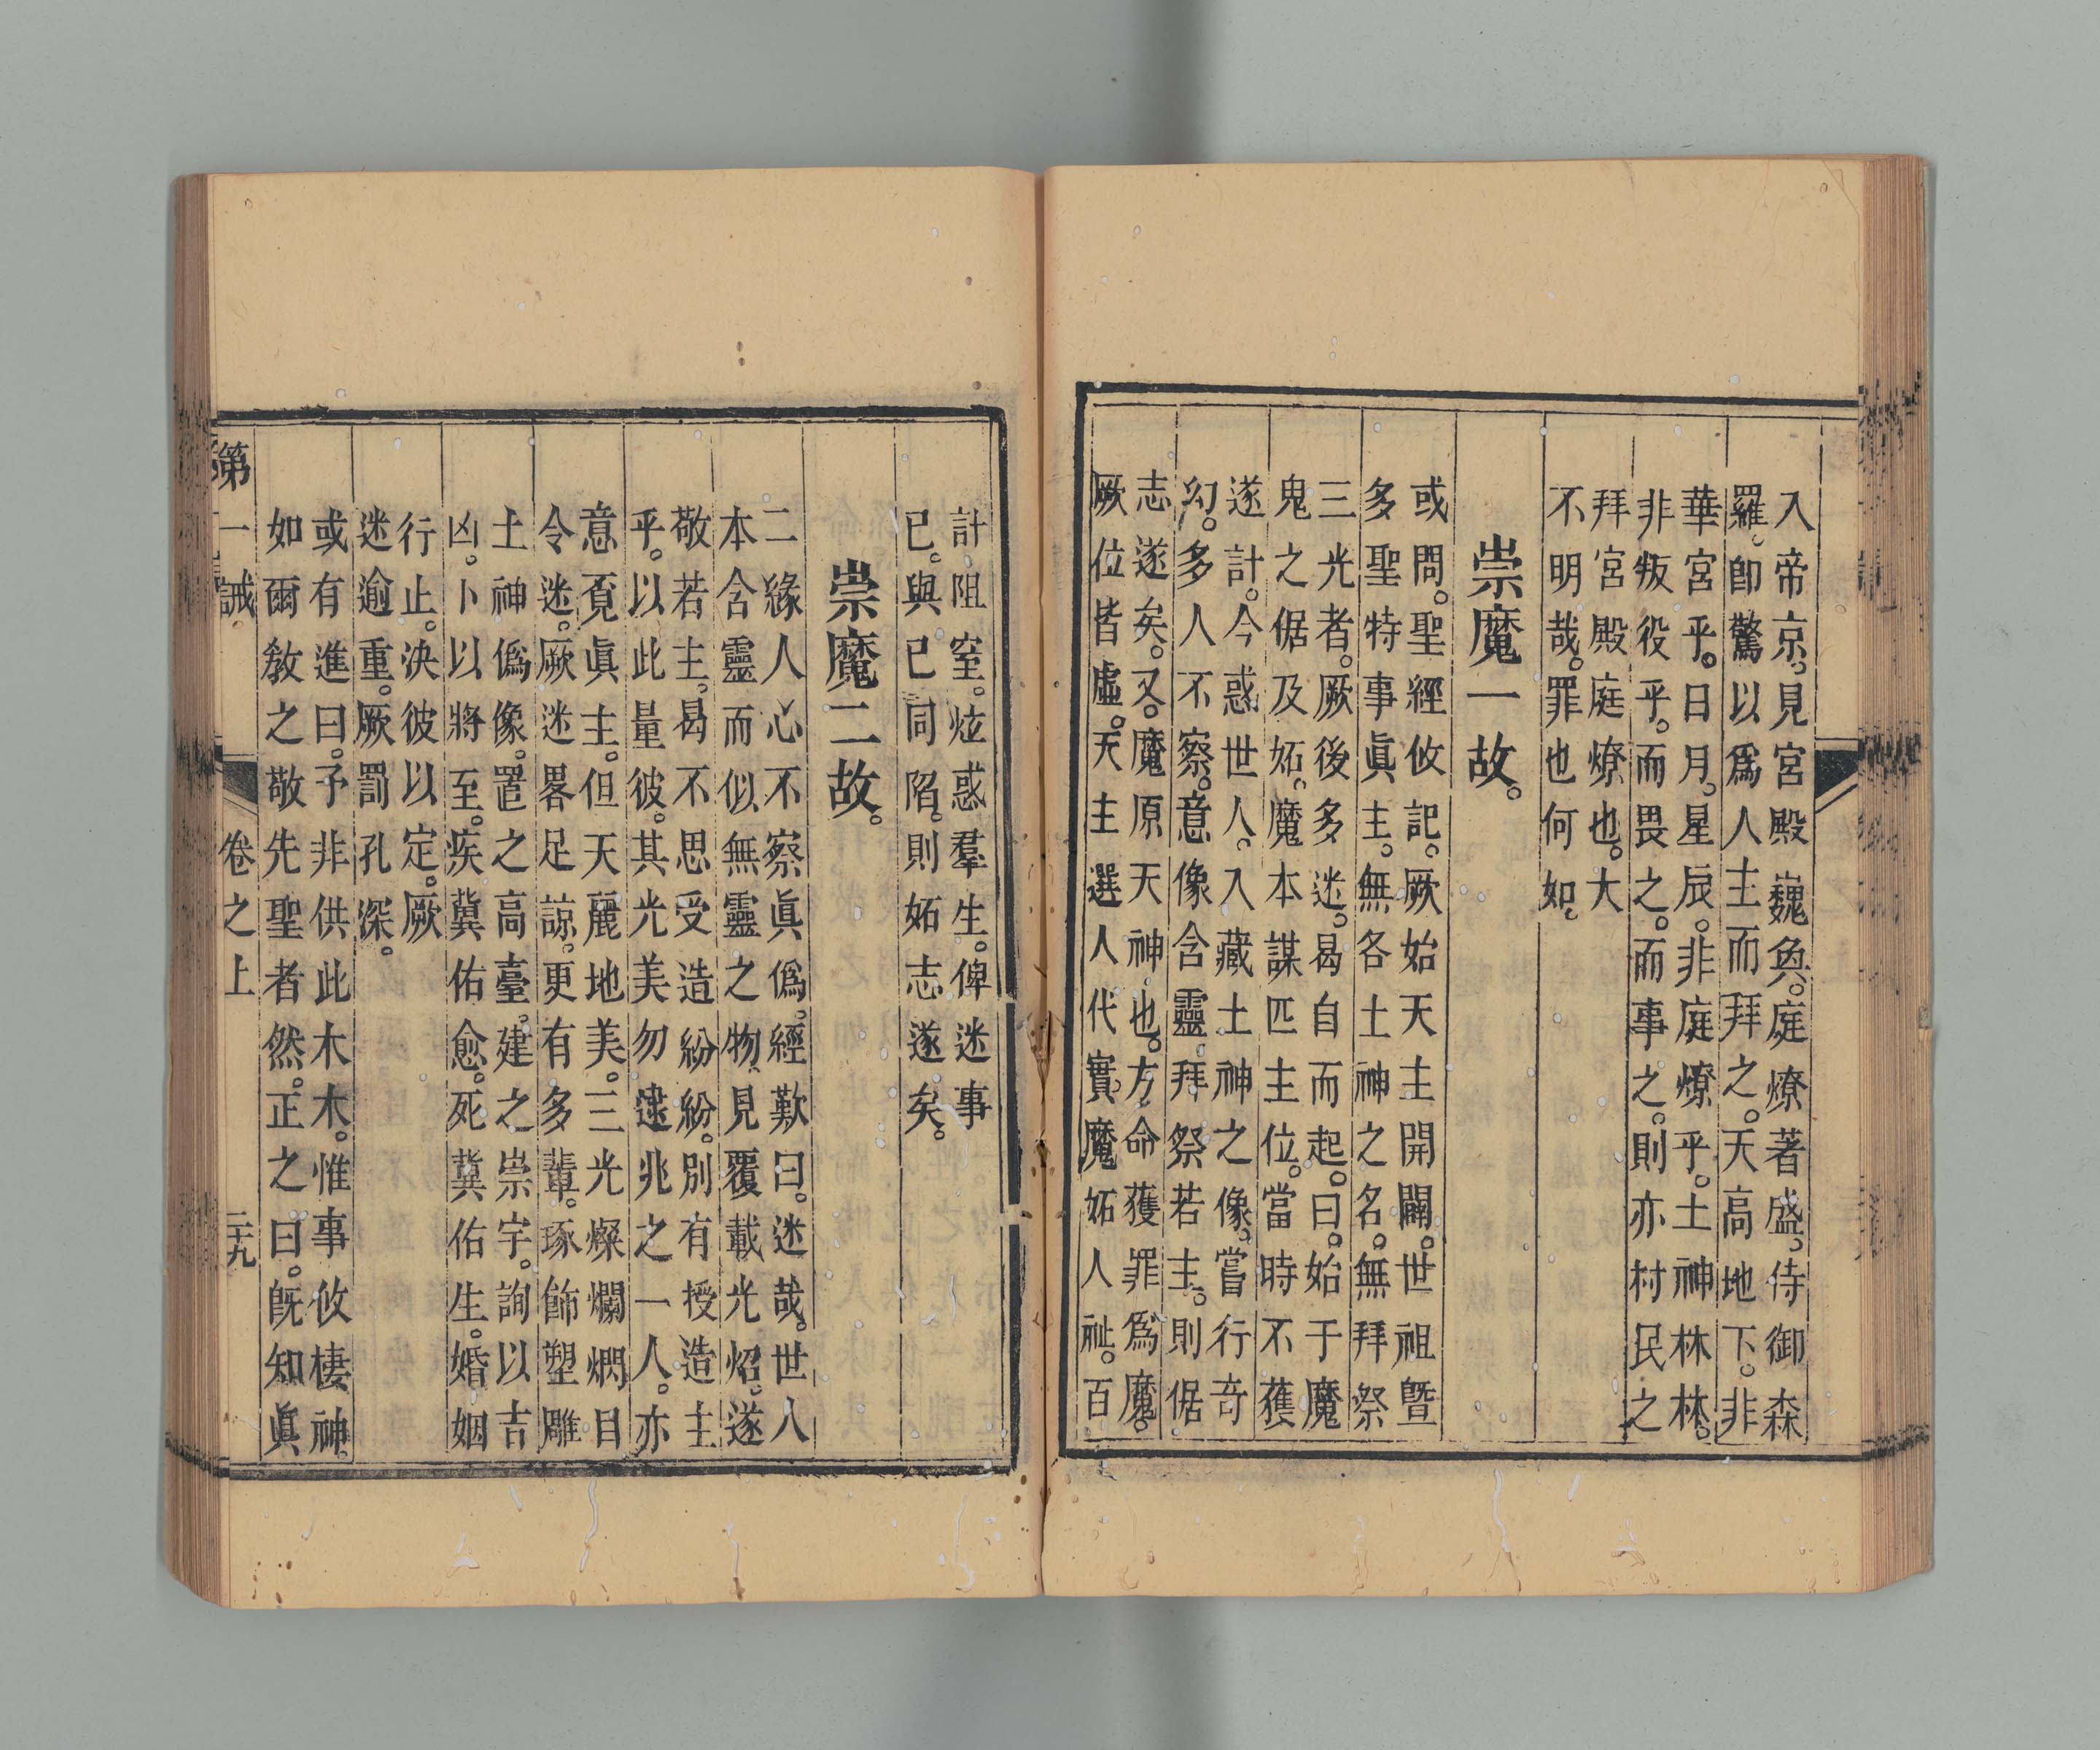 入帝京。見宮殿巍奐。庭燎著盛。侍御森
羅。卽驚以爲人主而拜之。天高地下。非
華宮乎。日月星辰。非庭燎乎。土神林林。
非叛役乎。而畏之。而事之。則亦村民之
拜宮殿庭燎也。大
不明哉。罪也何如。
崇魔一故。
或問。聖經攸記。厥始天主開闢。世祖曁
多聖特事眞主。無各土神之名。無拜祭
三光者。厥後多迷。曷自而起。曰。始于魔
鬼之倨及妬。魔本謀匹主位。當時不獲
遂計。今惑世人。入藏土神之像。嘗行奇
幻。多人不察。意像含靈。拜祭若主。則倨
志遂矣。又魔原天神也。方命獲罪爲魔。
厥位皆虛。天主選人代實。魔妬人祉。百
計阻窒。炫惑羣生。俾迷事
已。與已同陷。則妬志遂矣。
崇魔二故。
二緣人心不察眞僞。經歎曰。迷哉。世人
本含靈而似無靈之物。見覆載光炤。遂
敬若主。曷不思受造紛紛。別有授造主
乎。以此量彼。其光美勿逮兆之一人。亦
意覔眞主。但天麗地美。三光燦爛炯目
令迷。厥迷畧足諒。更有多輩。琢飾塑雕
土神僞像。置之高臺。建之崇宇。詢以吉
凶。卜以將至。疾冀佑愈。死冀佑生。婚姻
行止。決彼以定。厥
迷逾重。厥罰孔深。
或有進曰。予非供此木木。惟事攸棲神。
如爾敎之敬先聖者然。正之曰。旣知眞
第一誡。 卷之上 二十九